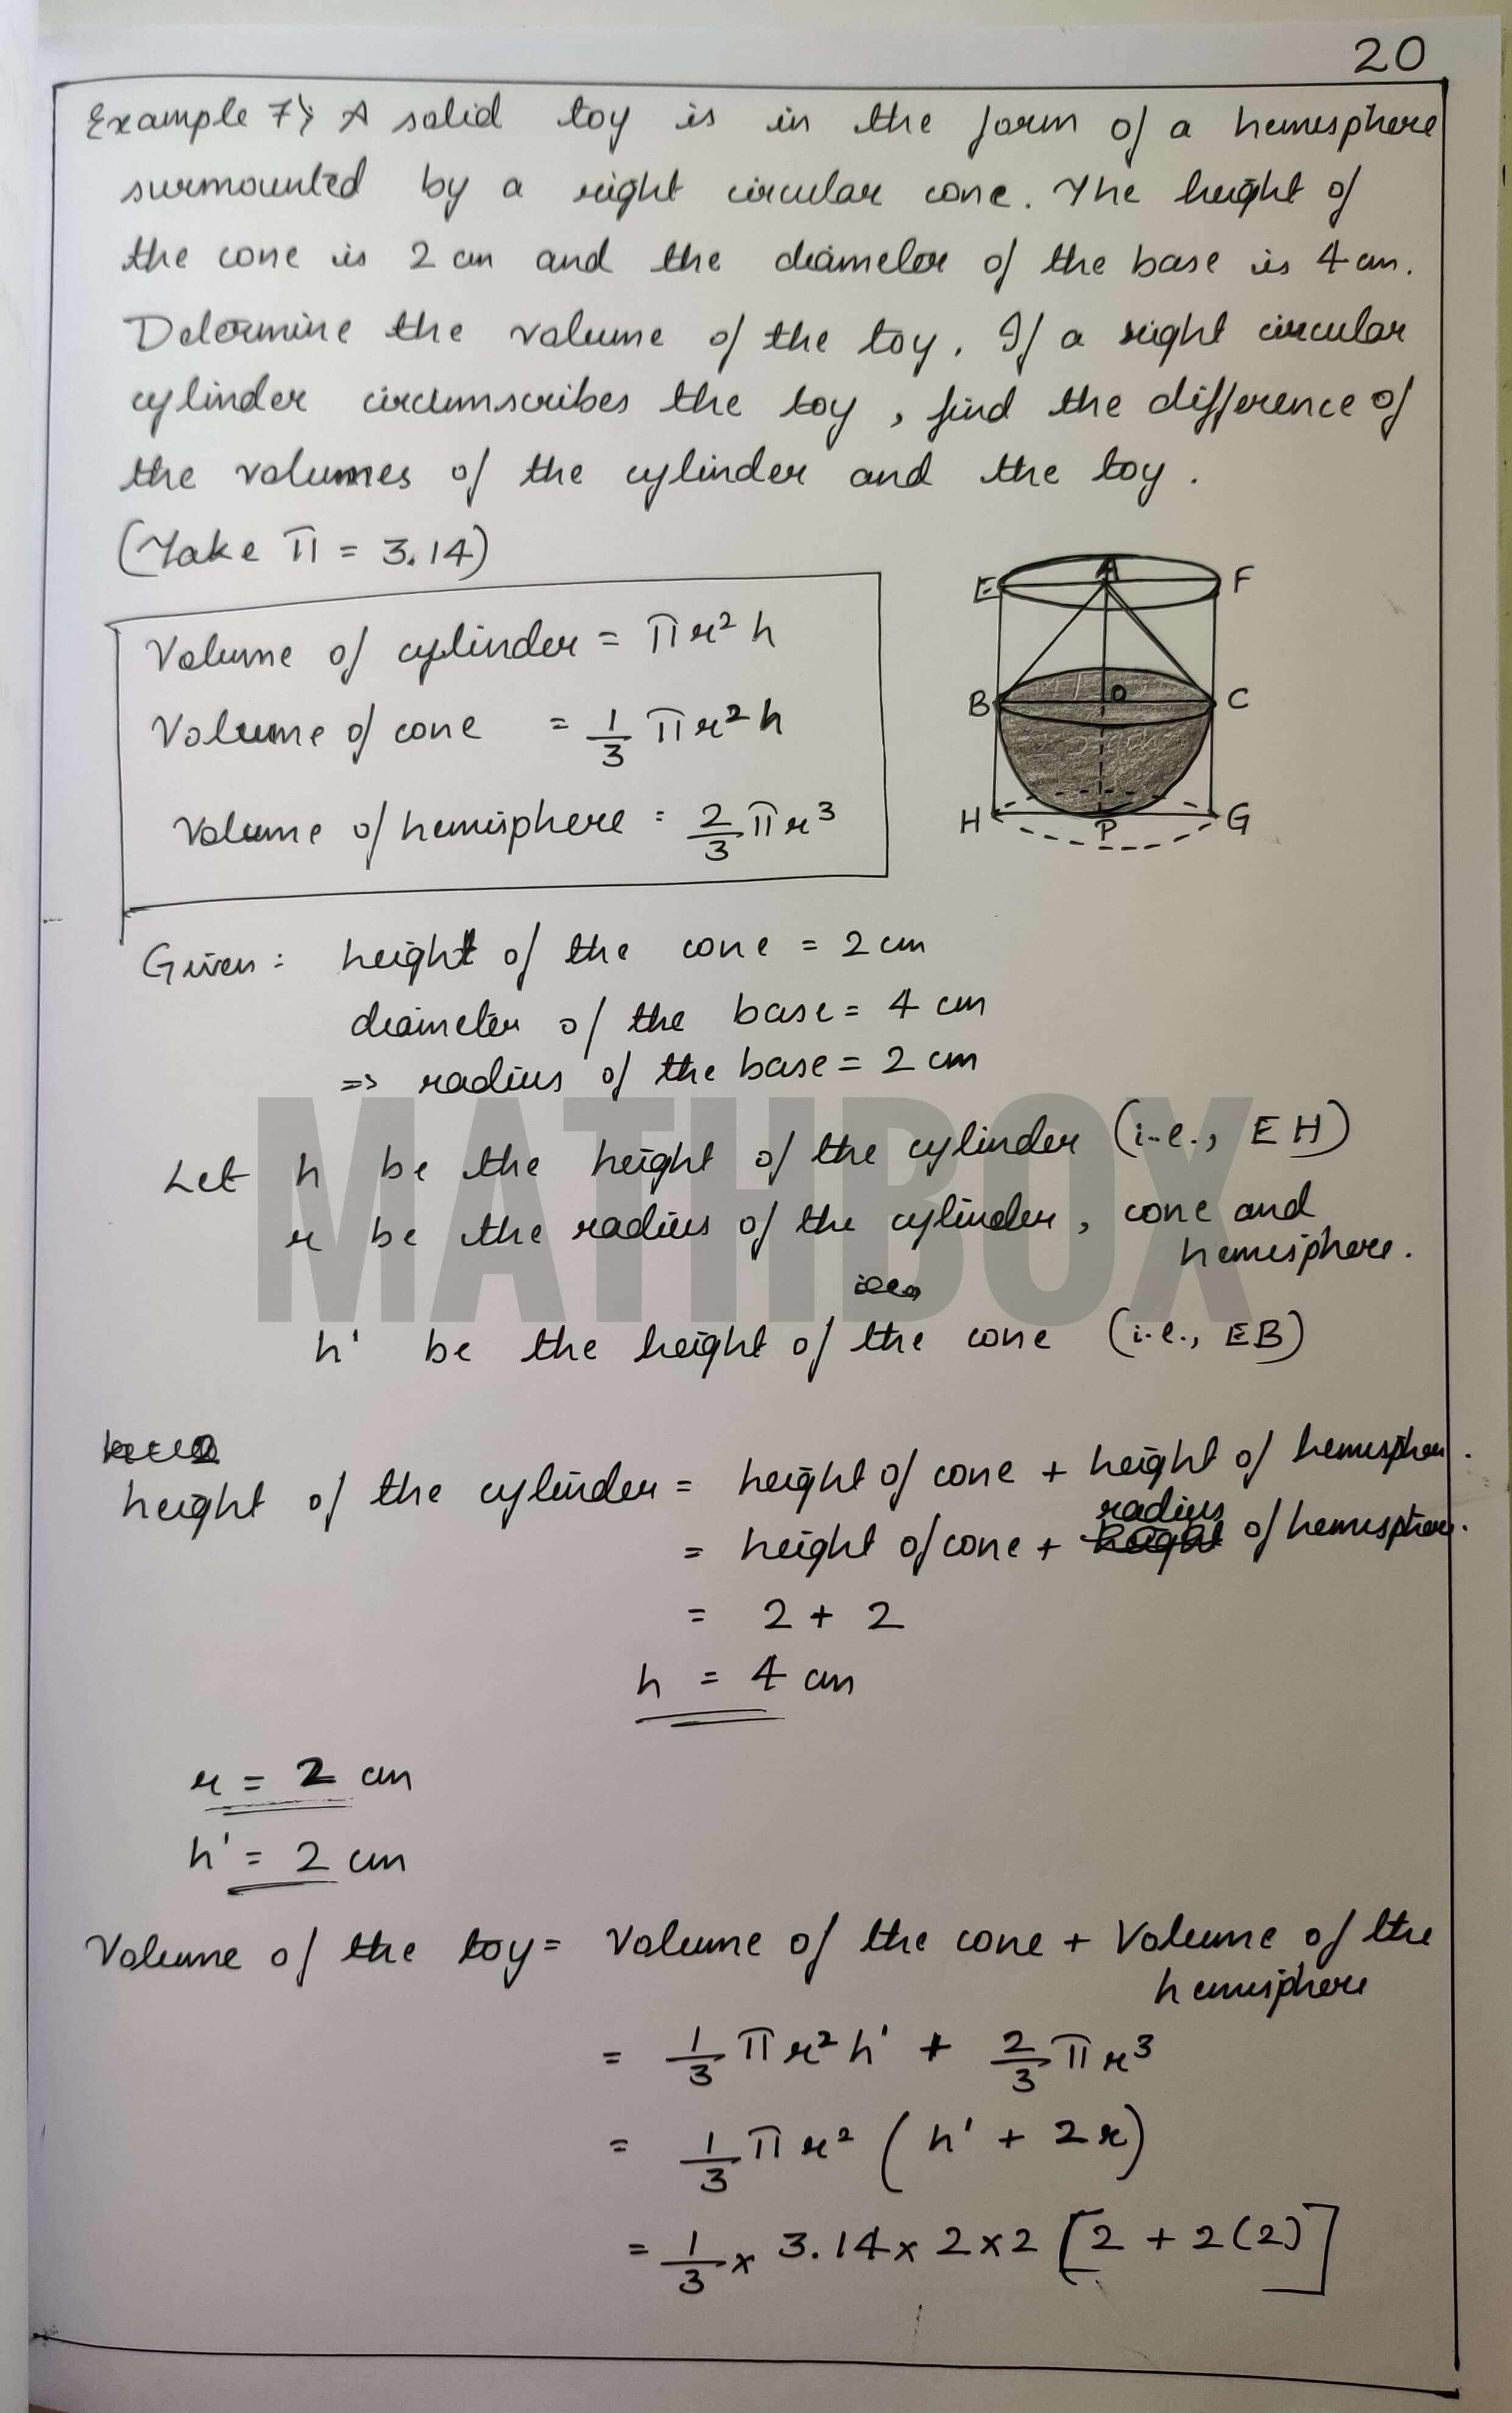 20
Example 7} A solid toy is in the form of a hemisphere
surmounted by a right circular cone. The height of
the cone is 2 cm and the diameter of the base is 4 cm.
Determine the volume of the toy. If a right circular
cylinder circumscribes the toy, find the difference of
the volumes of the cylinder and the toy.
(Take π = 3.14)
Volume of cylinder = πr²h
Volume of cone = 1/3 πr²h
Volume of hemisphere = 2/3 πr³
E A F
B O C
H P G
Given: height of the cone = 2 cm
diameter of the base = 4 cm
=> radius of the base = 2 cm
MATHBOX
Let h be the height of the cylinder (i.e., EH)
r be the radius of the cylinder, cone and
hemisphere.
h' be the height of the cone (i.e., EB)
height of the cylinder = height of cone + height of hemisphere.
= height of cone + radius of hemisphere.
= 2 + 2
h = 4 cm
r = 2 cm
h' = 2 cm
Volume of the toy = Volume of the cone + Volume of the
hemisphere
= 1/3 πr²h' + 2/3 πr³
= 1/3 πr² (h' + 2r)
= 1/3 × 3.14 × 2 × 2 [2 + 2(2)]